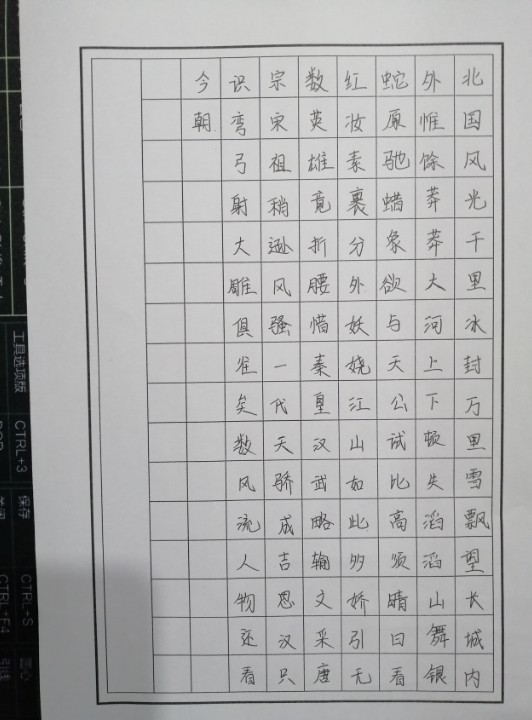 北国风光千里冰封万里雪飘望长城内
外惟馀莽莽大河上下顿失滔滔山舞银
蛇原驰蜡象欲与天公试比高须晴日看
红妆素裹分外妖娆江山如此多娇引无
数英雄竟折腰惜秦皇汉武略输文采唐
宗宋祖稍逊风骚一代天骄成吉思汉只
识弯弓射大雕俱往矣数风流人物还看
今朝
工具选项版 CTRL+3
保存 CTRL+S
CTRL+F4
圆心